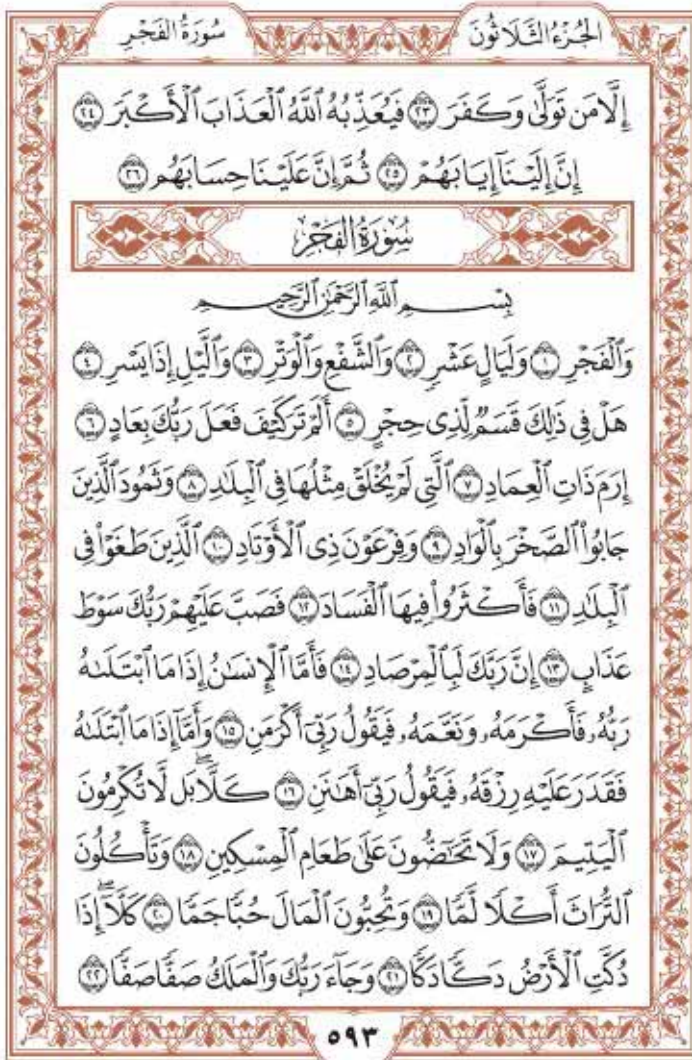 الجُزْءُ الثَّلَاثُونَ سُورَةُ الفَجْرِ
إِلَّا مَن تَوَلَّىٰ وَكَفَرَ ٢٣ فَيُعَذِّبُهُ ٱللَّهُ ٱلْعَذَابَ ٱلْأَكْبَرَ ٢٤
إِنَّ إِلَيْنَآ إِيَابَهُمْ ٢٥ ثُمَّ إِنَّ عَلَيْنَا حِسَابَهُم ٢٦
سُورَةُ الفَجْرِ
بِسْمِ ٱللَّهِ ٱلرَّحْمَٰنِ ٱلرَّحِيمِ
وَٱلْفَجْرِ ١ وَلَيَالٍ عَشْرٍ ٢ وَٱلشَّفْعِ وَٱلْوَتْرِ ٣ وَٱلَّيْلِ إِذَا يَسْرِ ٤
هَلْ فِي ذَٰلِكَ قَسَمٌ لِّذِي حِجْرٍ ٥ أَلَمْ تَرَ كَيْفَ فَعَلَ رَبُّكَ بِعَادٍ ٦
إِرَمَ ذَاتِ ٱلْعِمَادِ ٧ ٱلَّتِي لَمْ يُخْلَقْ مِثْلُهَا فِي ٱلْبِلَٰدِ ٨ وَثَمُودَ ٱلَّذِينَ
جَابُوا۟ ٱلصَّخْرَ بِٱلْوَادِ ٩ وَفِرْعَوْنَ ذِي ٱلْأَوْتَادِ ١٠ ٱلَّذِينَ طَغَوْا۟ فِي
ٱلْبِلَٰدِ ١١ فَأَكْثَرُوا۟ فِيهَا ٱلْفَسَادَ ١٢ فَصَبَّ عَلَيْهِمْ رَبُّكَ سَوْطَ
عَذَابٍ ١٣ إِنَّ رَبَّكَ لَبِٱلْمِرْصَادِ ١٤ فَأَمَّا ٱلْإِنسَٰنُ إِذَا مَا ٱبْتَلَىٰهُ
رَبُّهُۥ فَأَكْرَمَهُۥ وَنَعَّمَهُۥ فَيَقُولُ رَبِّيٓ أَكْرَمَنِ ١٥ وَأَمَّآ إِذَا مَا ٱبْتَلَىٰهُ
فَقَدَرَ عَلَيْهِ رِزْقَهُۥ فَيَقُولُ رَبِّيٓ أَهَٰنَنِ ١٦ كَلَّاۖ بَل لَّا تُكْرِمُونَ
ٱلْيَتِيمَ ١٧ وَلَا تَحَٰٓضُّونَ عَلَىٰ طَعَامِ ٱلْمِسْكِينِ ١٨ وَتَأْكُلُونَ
ٱلتُّرَاثَ أَكْلًا لَّمًّا ١٩ وَتُحِبُّونَ ٱلْمَالَ حُبًّا جَمًّا ٢٠ كَلَّآۖ إِذَا
دُكَّتِ ٱلْأَرْضُ دَكًّا دَكًّا ٢١ وَجَآءَ رَبُّكَ وَٱلْمَلَكُ صَفًّا صَفًّا ٢٢
٥٩٣